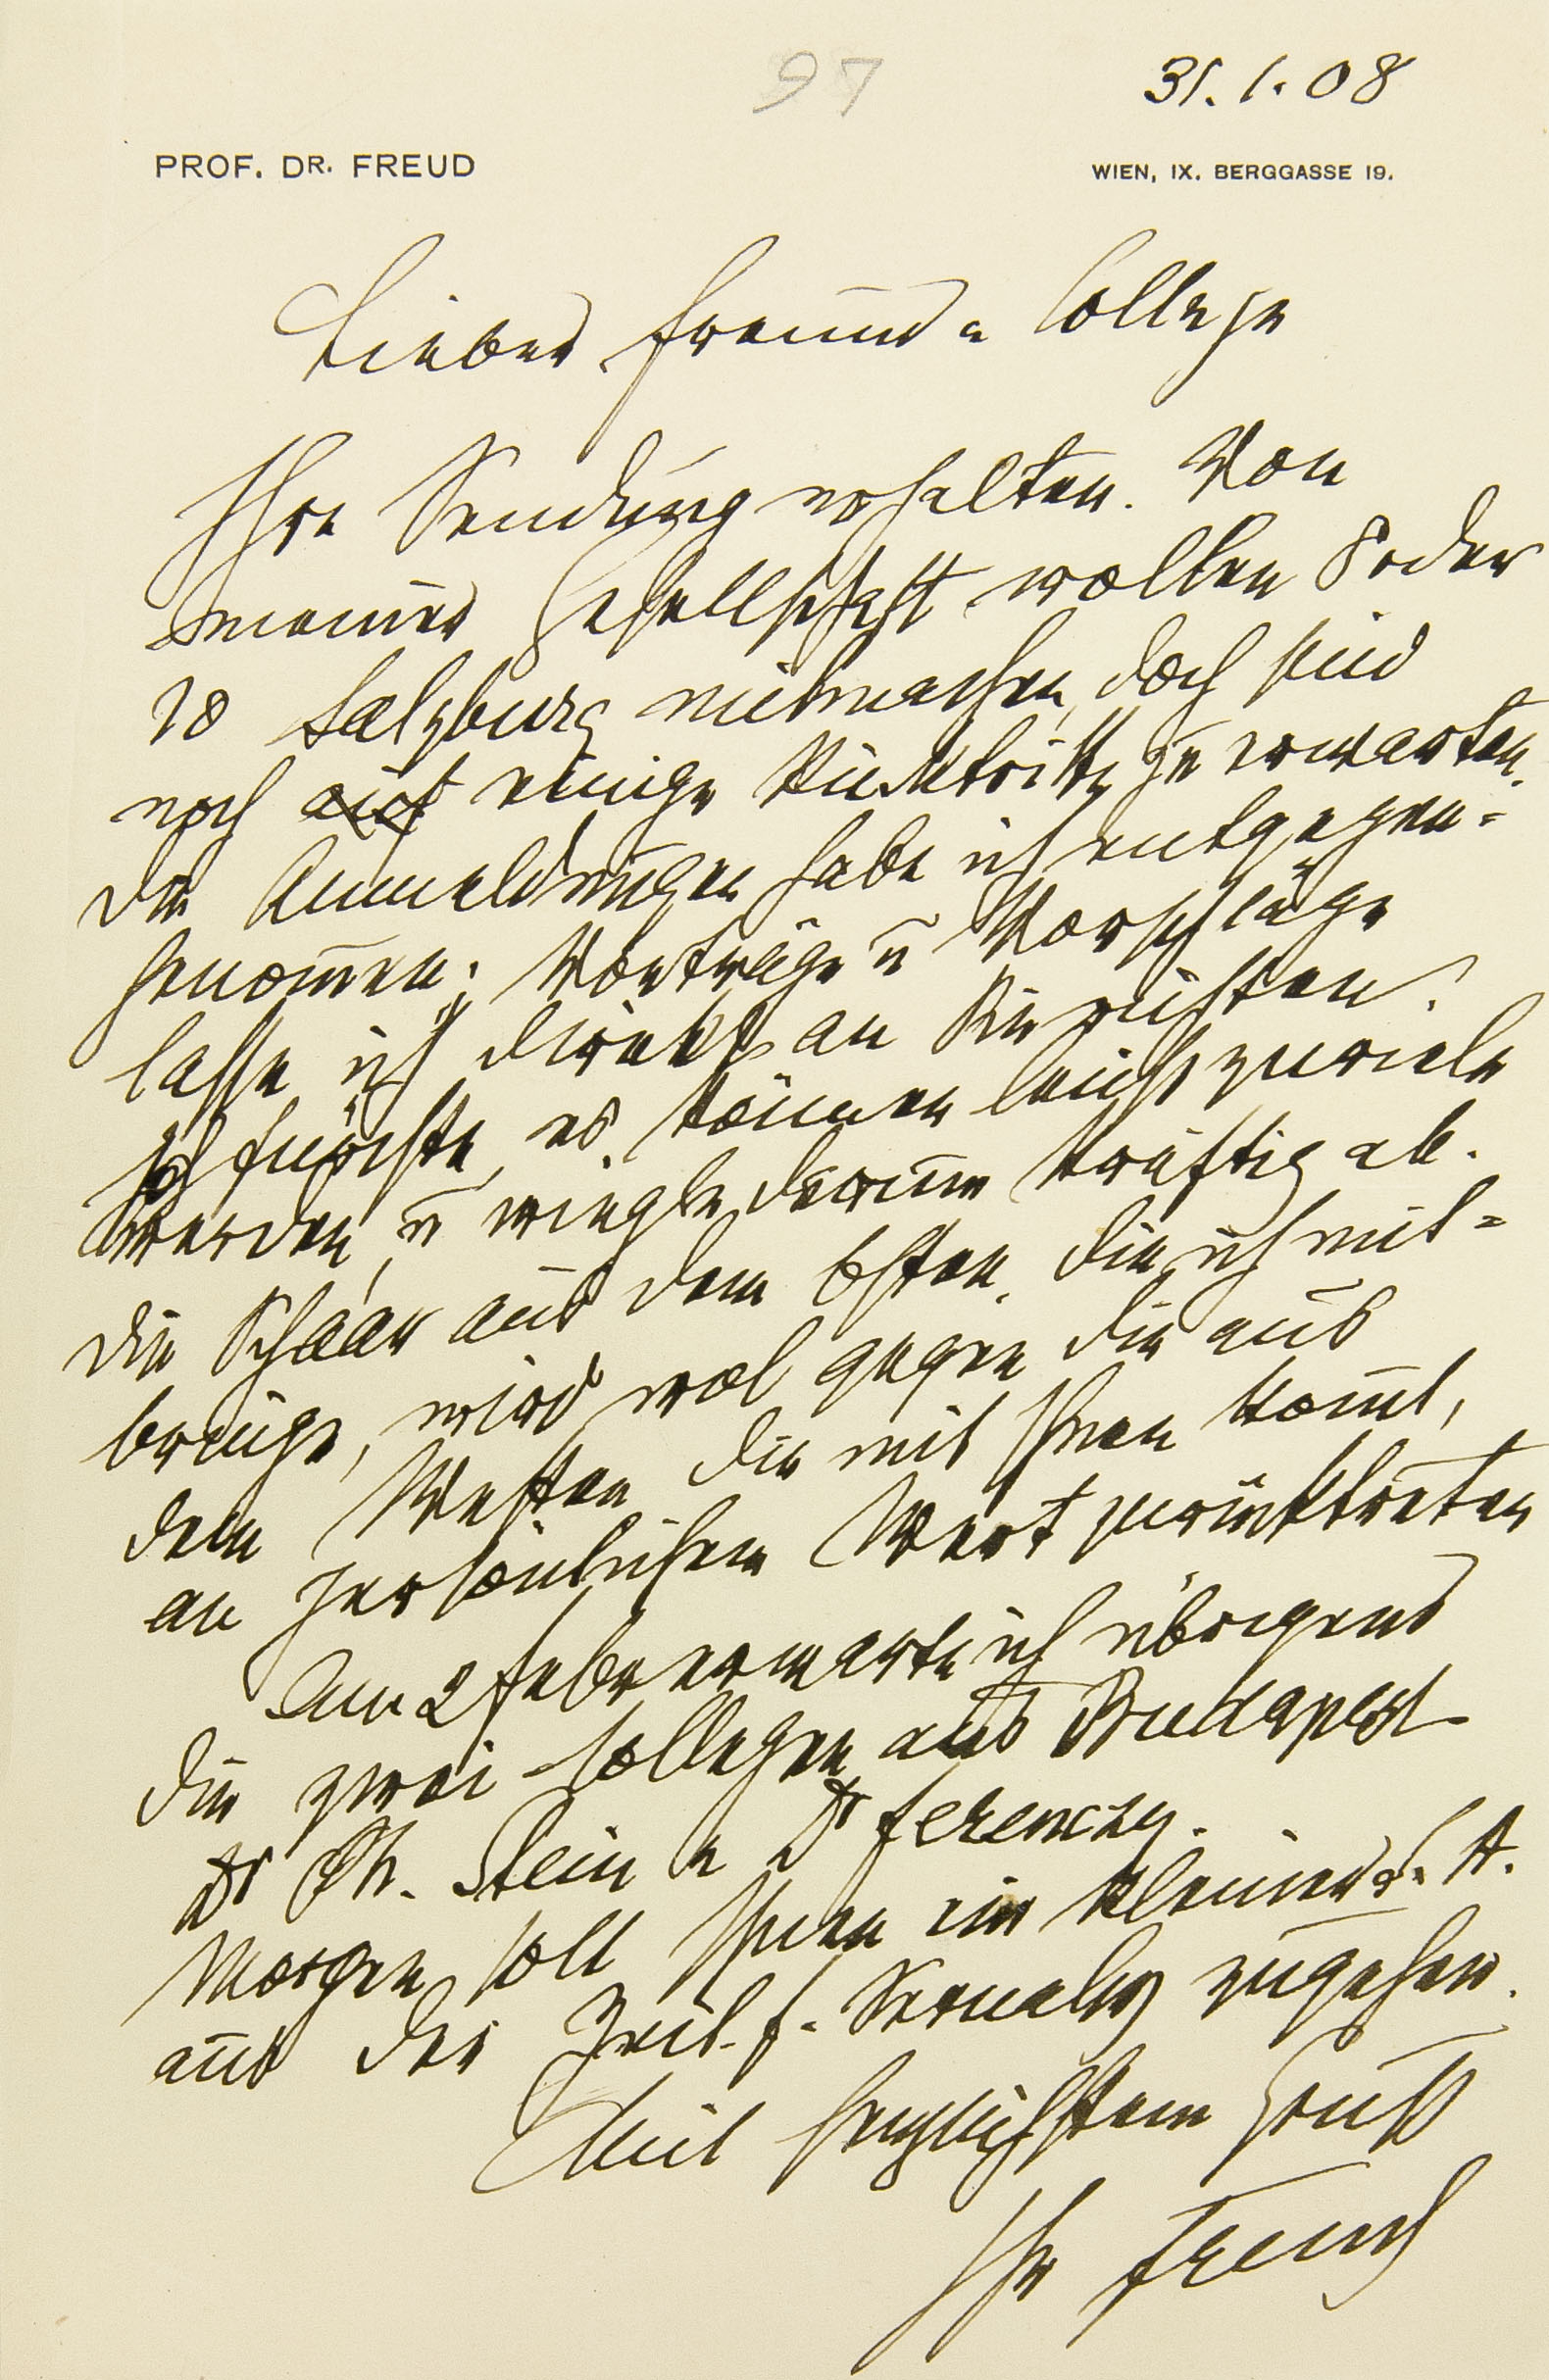 97
31.1.08
PROF. DR. FREUD
WIEN, IX. BERGGASSE 19.
Lieber Freund u College
Ihre Sendung erhalten. Von
meiner Gesellschaft wollen 8 oder
10 Salzburg mitmachen, doch sind
noch einige Rücktritte zu erwarten.
Die Anmeldungen habe ich entgegen-
genommen; Vorträge u Vorschläge
lasse ich direkt an Sie richten.
Ich fürchte, es können leicht zuviele
werden, u wiegle darum kräftig ab.
Die Schaar aus dem Osten, die ich mit-
bringe, wird wol gegen die aus
dem Westen die mit Ihnen kommt,
an persönlichem Wert zurücktreten
Am 2 Febr erwarte ich übrigens
die zwei Collegen aus Budapest
Dr Ph. Stein u Dr Ferenczy.
Morgen soll Ihnen ein kleiner S. A.
aus der Zeit. f. Sexualw zugehen.
Mit herzlichstem Gruß
Ihr Freud